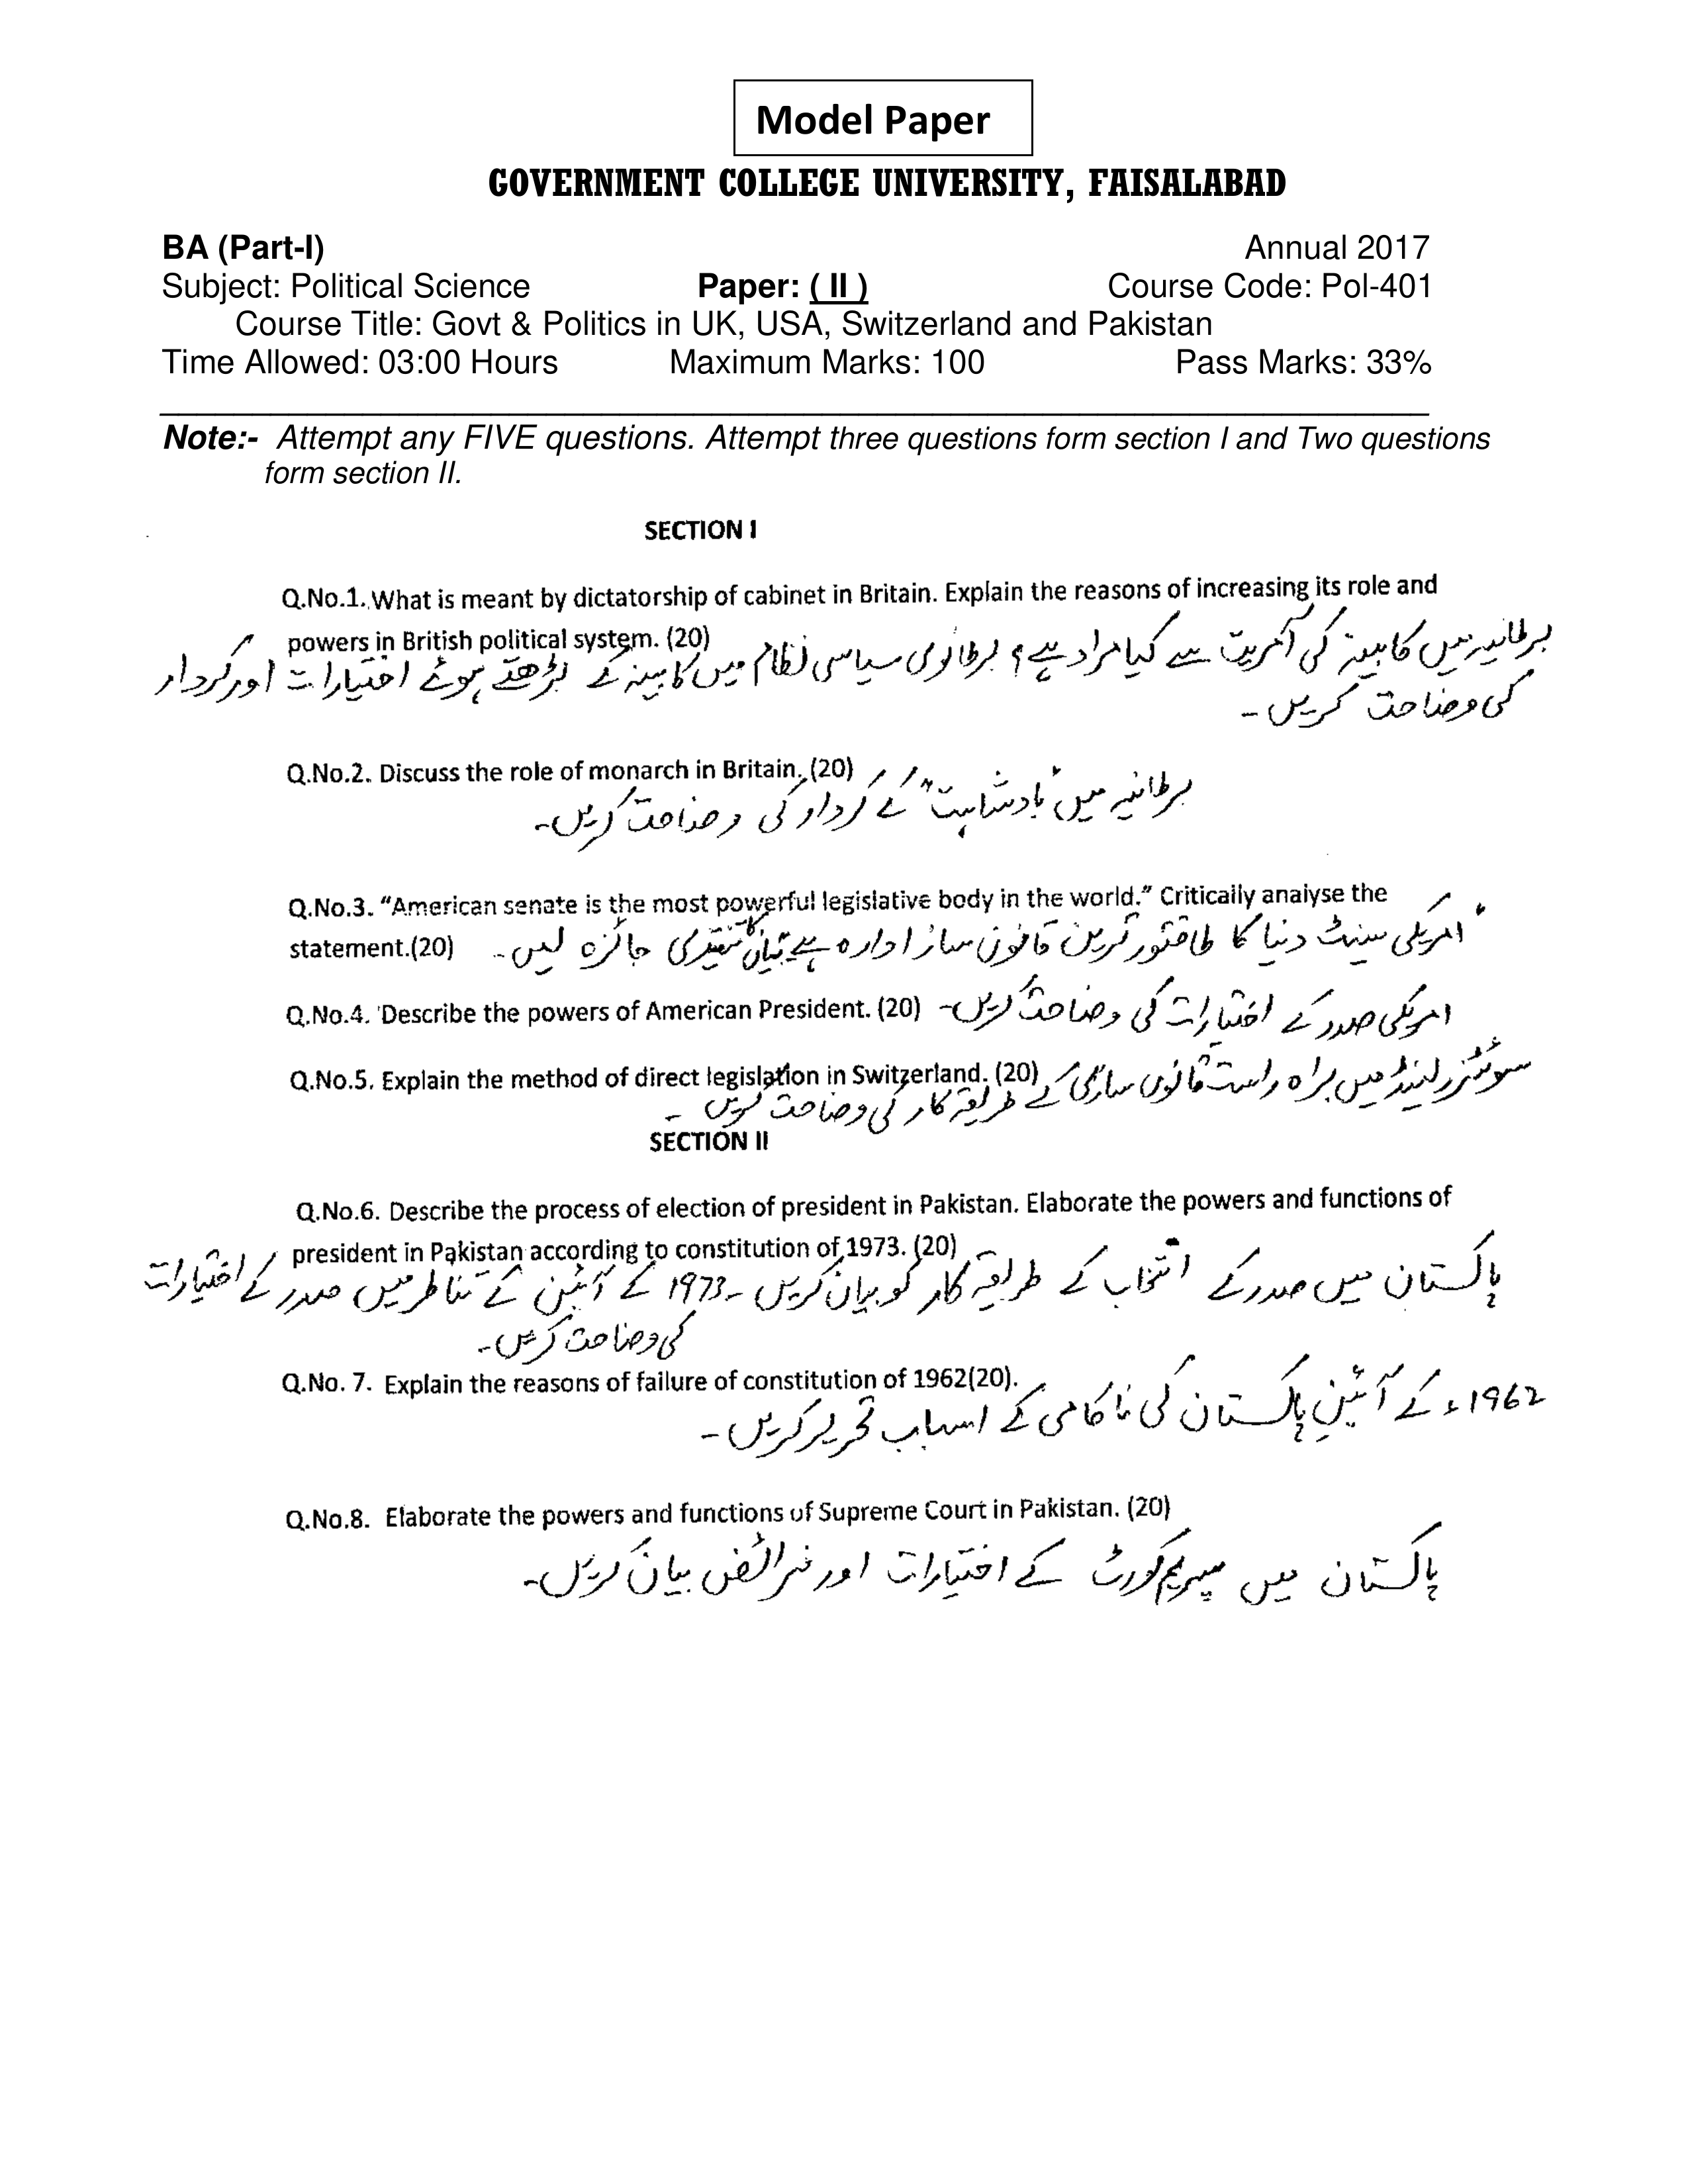 Model Paper
GOVERNMENT COLLEGE UNIVERSITY, FAISALABAD
BA (Part-I) Annual 2017
Subject: Political Science Paper: ( II ) Course Code: Pol-401
Course Title: Govt & Politics in UK, USA, Switzerland and Pakistan
Time Allowed: 03:00 Hours Maximum Marks: 100 Pass Marks: 33%
Note:- Attempt any FIVE questions. Attempt three questions form section I and Two questions
form section II.
SECTION I
Q.No.1. What is meant by dictatorship of cabinet in Britain. Explain the reasons of increasing its role and
powers in British political system. (20)
برطانیہ میں کابینہ کی آمریت سے کیا مراد ہے؟ برطانوی سیاسی نظام میں کابینہ کے بڑھتے ہوئے اختیارات اور کردار
کی وضاحت کریں۔
Q.No.2. Discuss the role of monarch in Britain. (20)
برطانیہ میں "بادشاہت" کے کردار کی وضاحت کریں۔
Q.No.3. “American senate is the most powerful legislative body in the world.” Critically analyse the
statement.(20) امریکی سینٹ دنیا کا طاقتور ترین قانون ساز ادارہ ہے بیان کا تنقیدی جائزہ لیں۔
Q.No.4. Describe the powers of American President. (20) امریکی صدر کے اختیارات کی وضاحت کریں۔
Q.No.5. Explain the method of direct legislation in Switzerland. (20) سوئٹزرلینڈ میں براہ راست قانون سازی کے
طریقہ کار کی وضاحت کریں۔
SECTION II
Q.No.6. Describe the process of election of president in Pakistan. Elaborate the powers and functions of
president in Pakistan according to constitution of 1973. (20)
پاکستان میں صدر کے انتخاب کے طریقہ کار کو بیان کریں۔ 1973 کے آئین کے تناظر میں صدر کے اختیارات
کی وضاحت کریں۔
Q.No. 7. Explain the reasons of failure of constitution of 1962(20).
1962ء کے آئینِ پاکستان کی ناکامی کے اسباب تحریر کریں۔
Q.No.8. Elaborate the powers and functions of Supreme Court in Pakistan. (20)
پاکستان میں سپریم کورٹ کے اختیارات اور فرائض بیان کریں۔